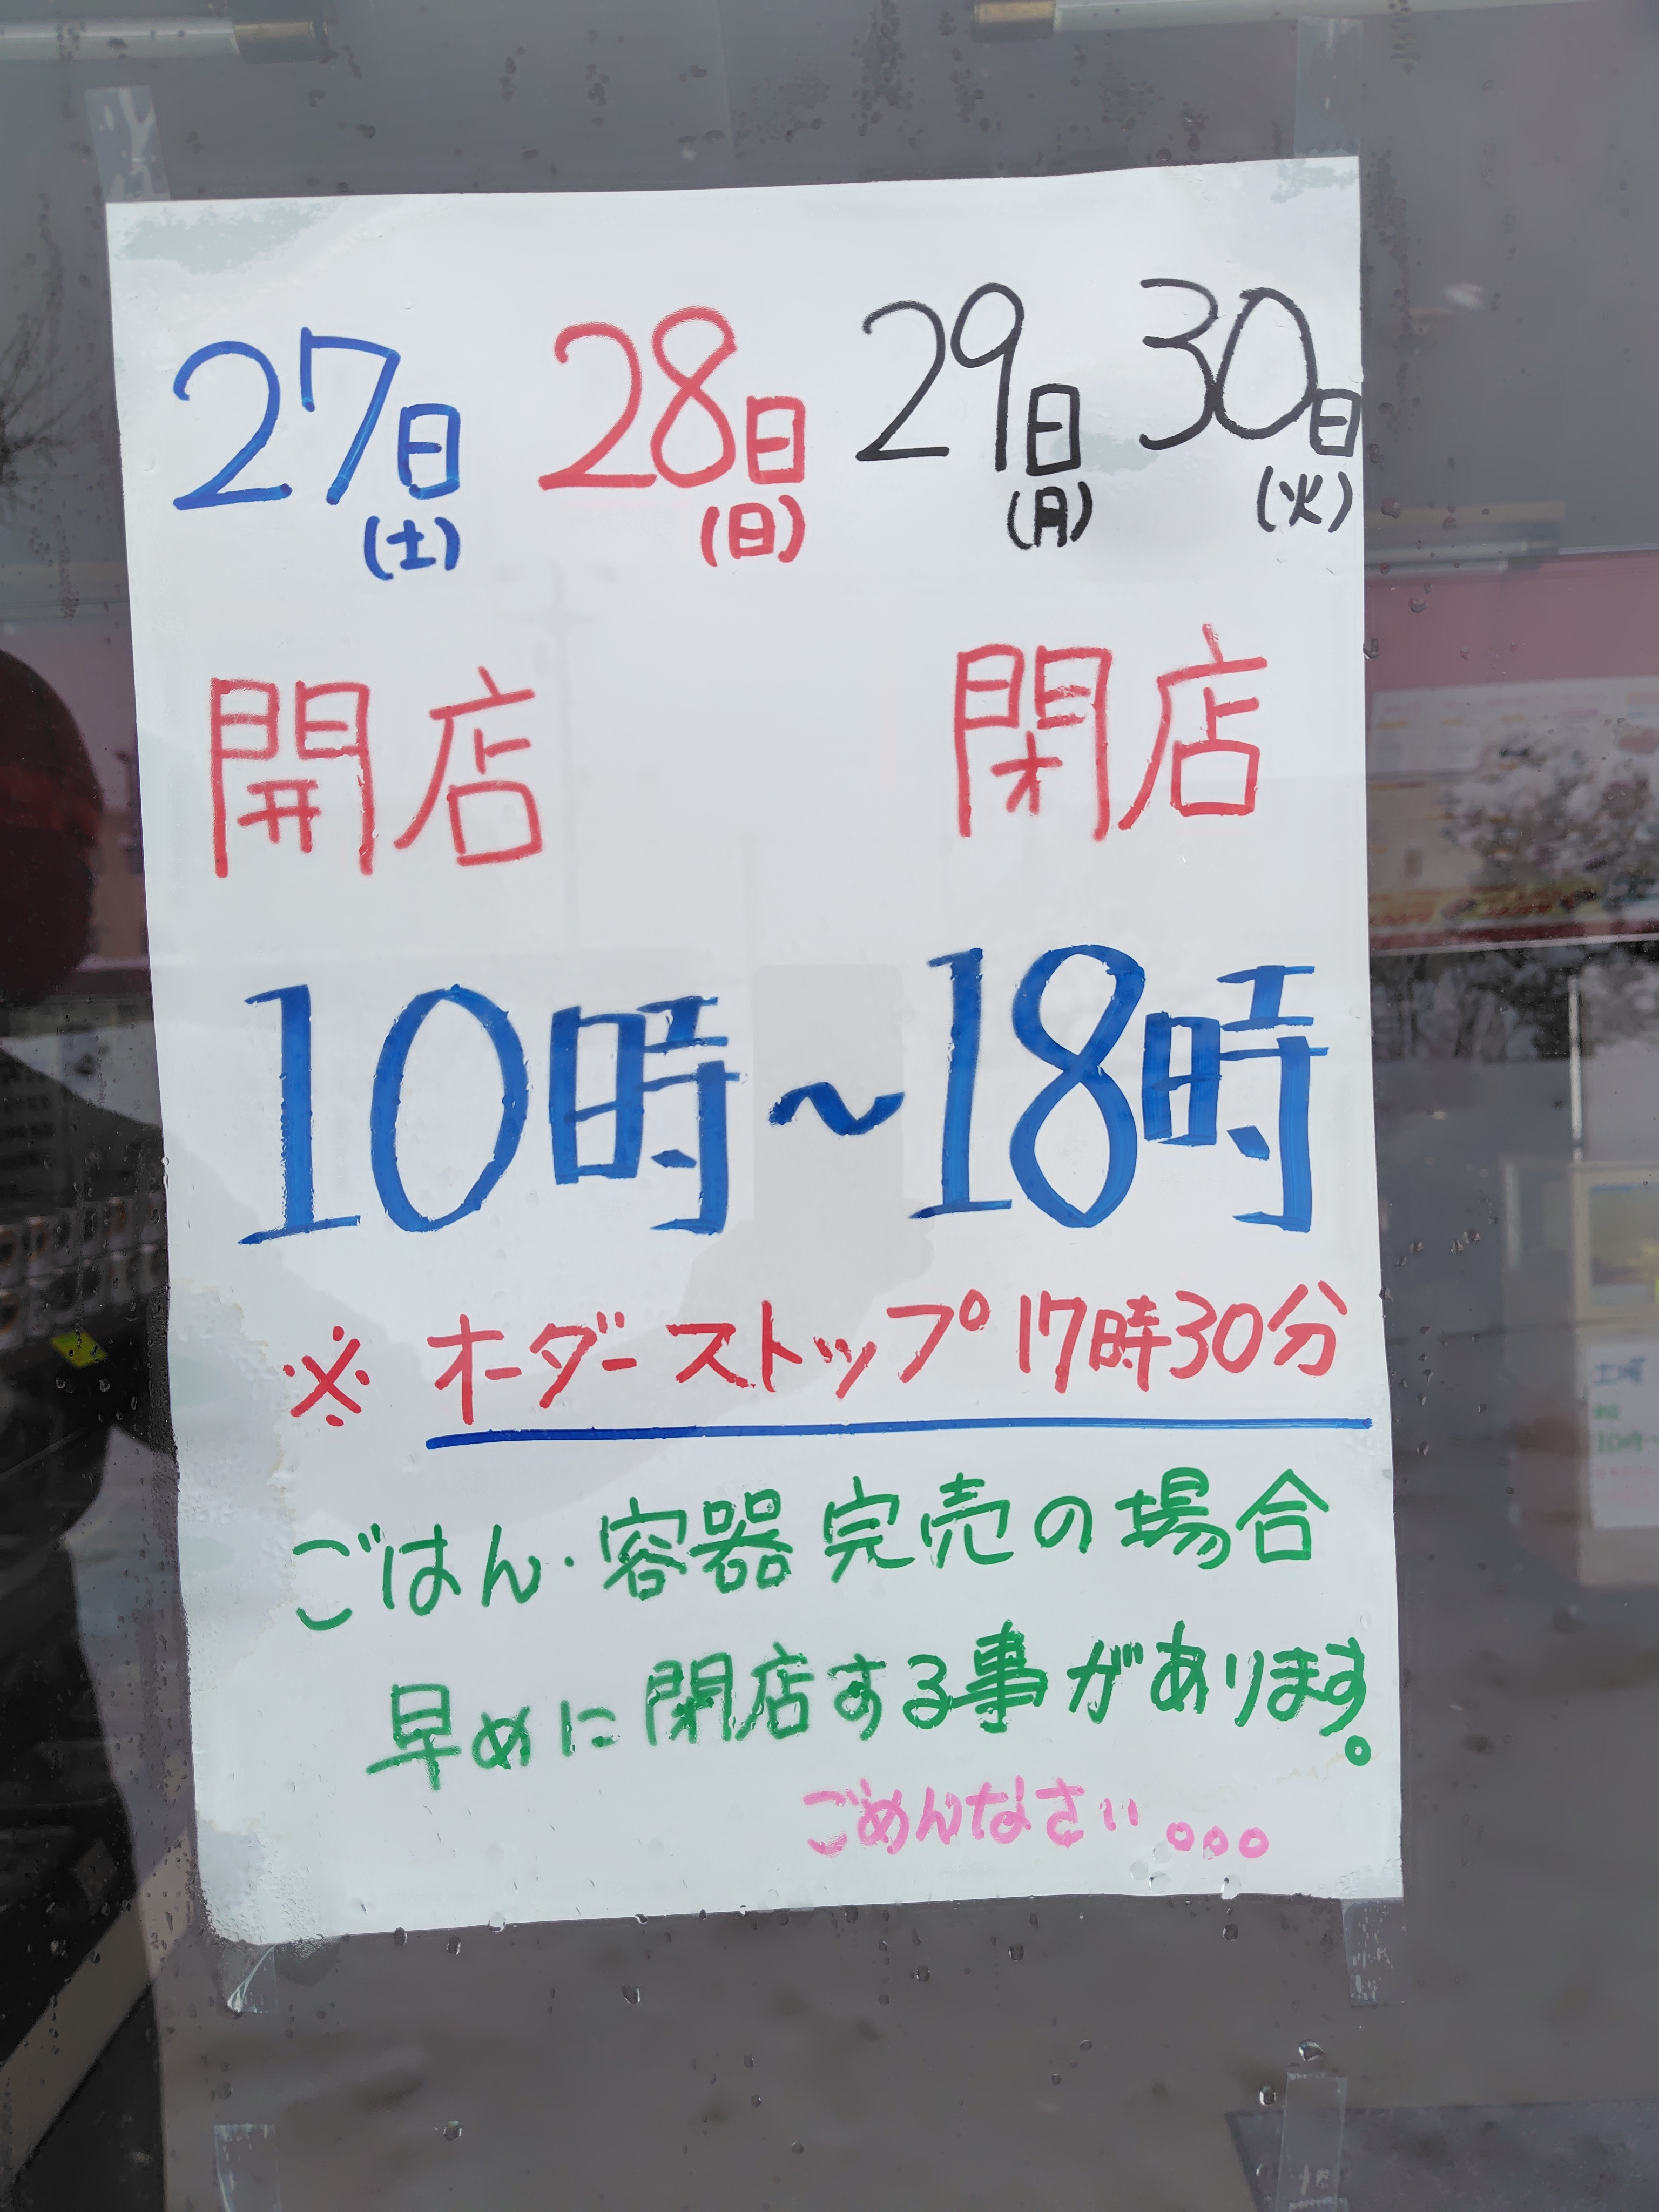 27日 28日 29日 30日
(土) (日) (月) (火)
開店 閉店
10時～18時
※ オーダーストップ 17時30分
ごはん・容器 完売の場合
早めに閉店する事があります。
ごめんなさい。。。
土曜
10時~